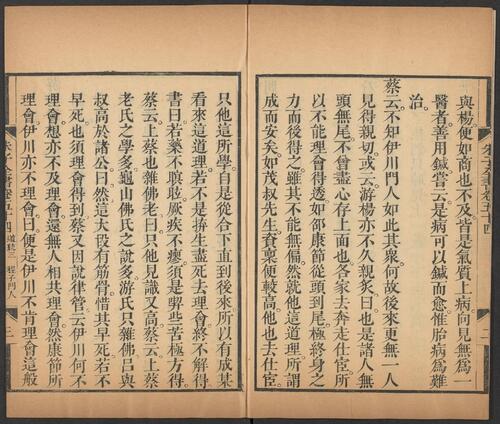 與楊便如商也不及皆是氣質上病向見無爲一
醫者善用鍼嘗云是病可以鍼而愈惟胎病爲難
治
蔡云不知伊川門人如此其衆何故後來更無一人
見得親切或云游楊亦不久親炙曰也是諸人無
頭無尾不曾盡心存上面也各家去奔走仕宦所
以不能理會得透如邵康節從頭到尾極終身之
力而後得之雖其不能無偏然就他這道理所謂
成而安矣如茂叔先生資稟便較高他也去仕宦
只他這所學自是從合下直到後來所以有成某
看來這道理若不是拚生盡死去理會終不解得
書曰若藥不瞑眩厥疾不瘳須是喫些苦極方得
蔡云上蔡也雜佛老曰只他見識又高蔡云上蔡
老氏之學多龜山佛氏之說多游氏只雜佛呂與
叔高於諸公曰然這大段有筋骨惜其早死若不
早死也須理會得到蔡又因說律管云伊川何不
理會想亦不及理會還無人相共理會然康節所
理會伊川亦不理會曰便是伊川不肯理會這般
朱子全書卷五十四 道統三 程子門人
三
二